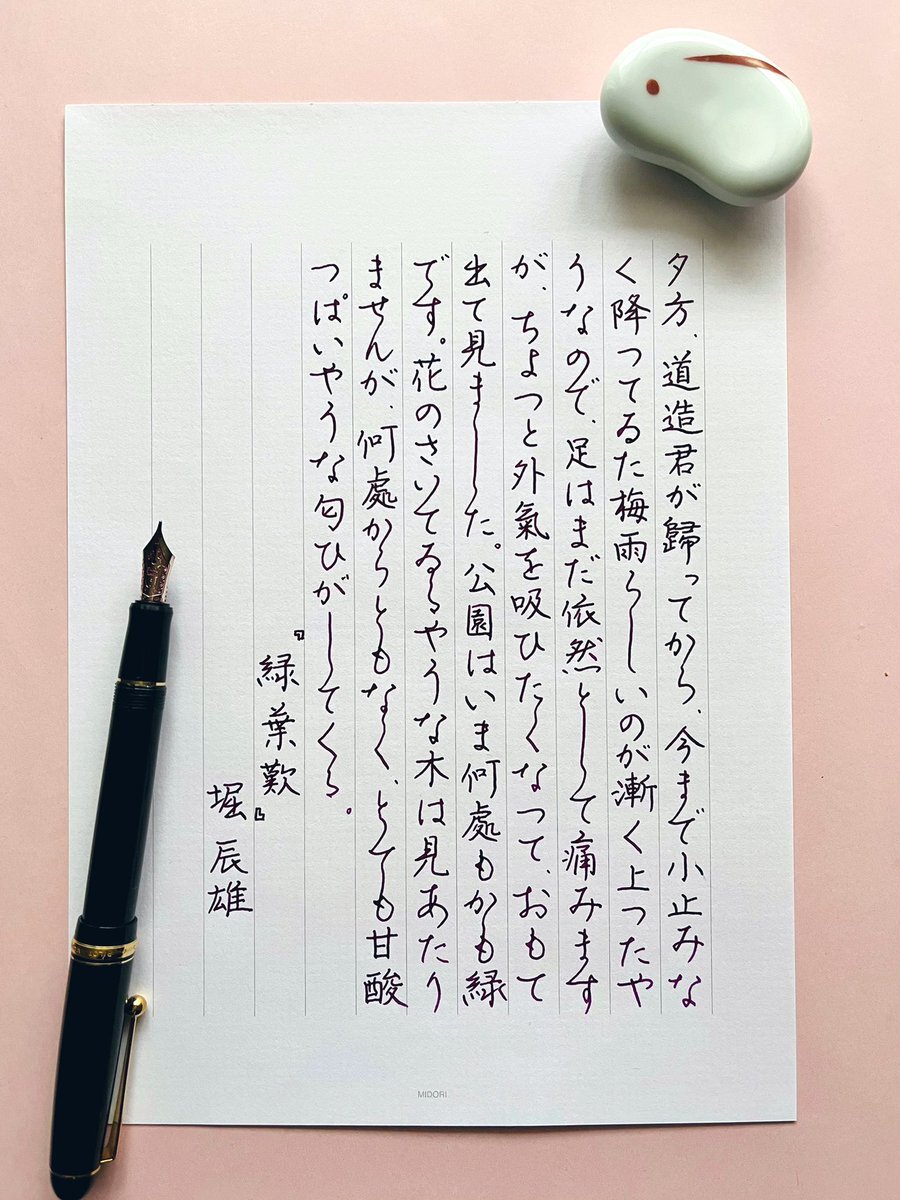 夕方、道造君が歸ってから、今まで小止みな
く降つてゐた梅雨らしいのが漸く上つたや
うなので、足はまだ依然として痛みます
が、ちよつと外氣を吸ひたくなつて、おもて
出て見ました。公園はいま何處もかも緑
です。花のさいてゐるやうな木は見あたり
ませんが、何處からともなく、とても甘酸
つぱいやうな匂ひがしてくる。
『緑葉歎』
堀辰雄
MIDORI